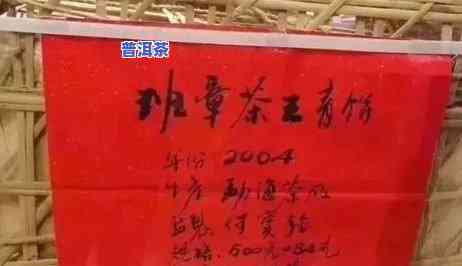 普洱茶
班章茶王青饼
年份 2004
生产 勐海茶厂
监制 付
规格 500克